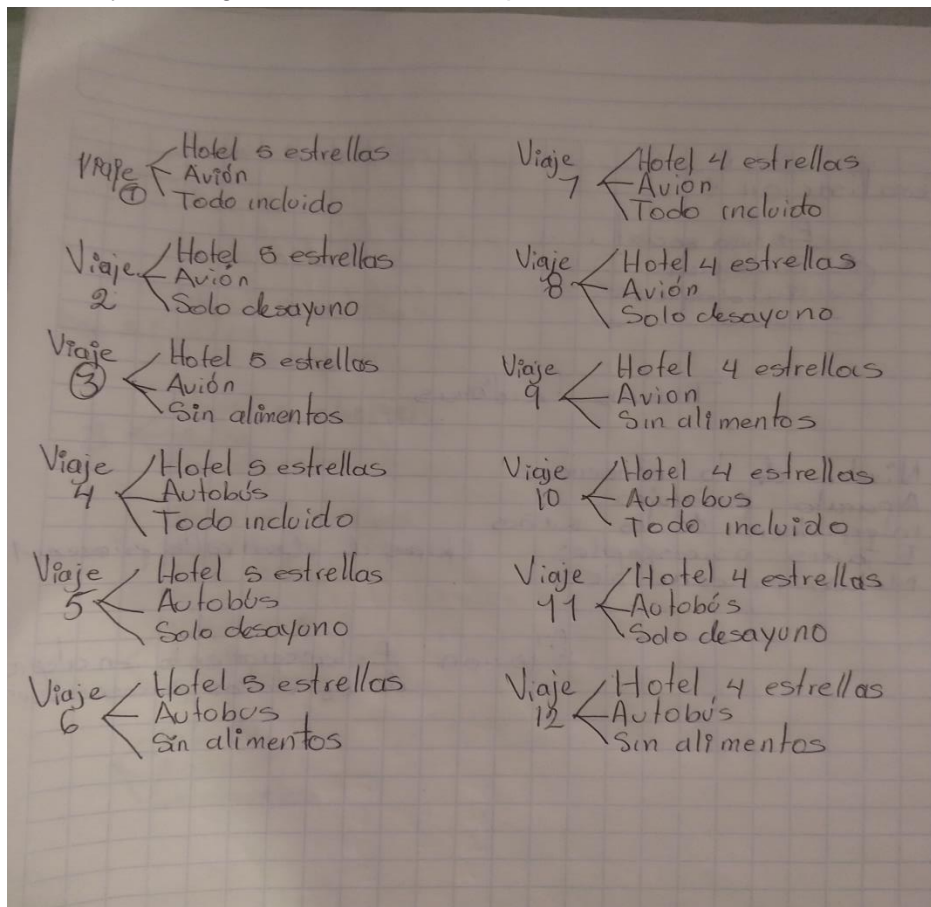 Viaje 1
Hotel 5 estrellas
Avión
Todo incluido
Viaje 2
Hotel 5 estrellas
Avión
Solo desayuno
Viaje 3
Hotel 5 estrellas
Avión
Sin alimentos
Viaje 4
Hotel 5 estrellas
Autobús
Todo incluido
Viaje 5
Hotel 5 estrellas
Autobús
Solo desayuno
Viaje 6
Hotel 5 estrellas
Autobus
Sin alimentos
Viaje 7
Hotel 4 estrellas
Avion
Todo incluido
Viaje 8
Hotel 4 estrellas
Avión
Solo desayuno
Viaje 9
Hotel 4 estrellas
Avion
Sin alimentos
Viaje 10
Hotel 4 estrellas
Autobus
Todo incluido
Viaje 11
Hotel 4 estrellas
Autobús
Solo desayuno
Viaje 12
Hotel 4 estrellas
Autobús
Sin alimentos